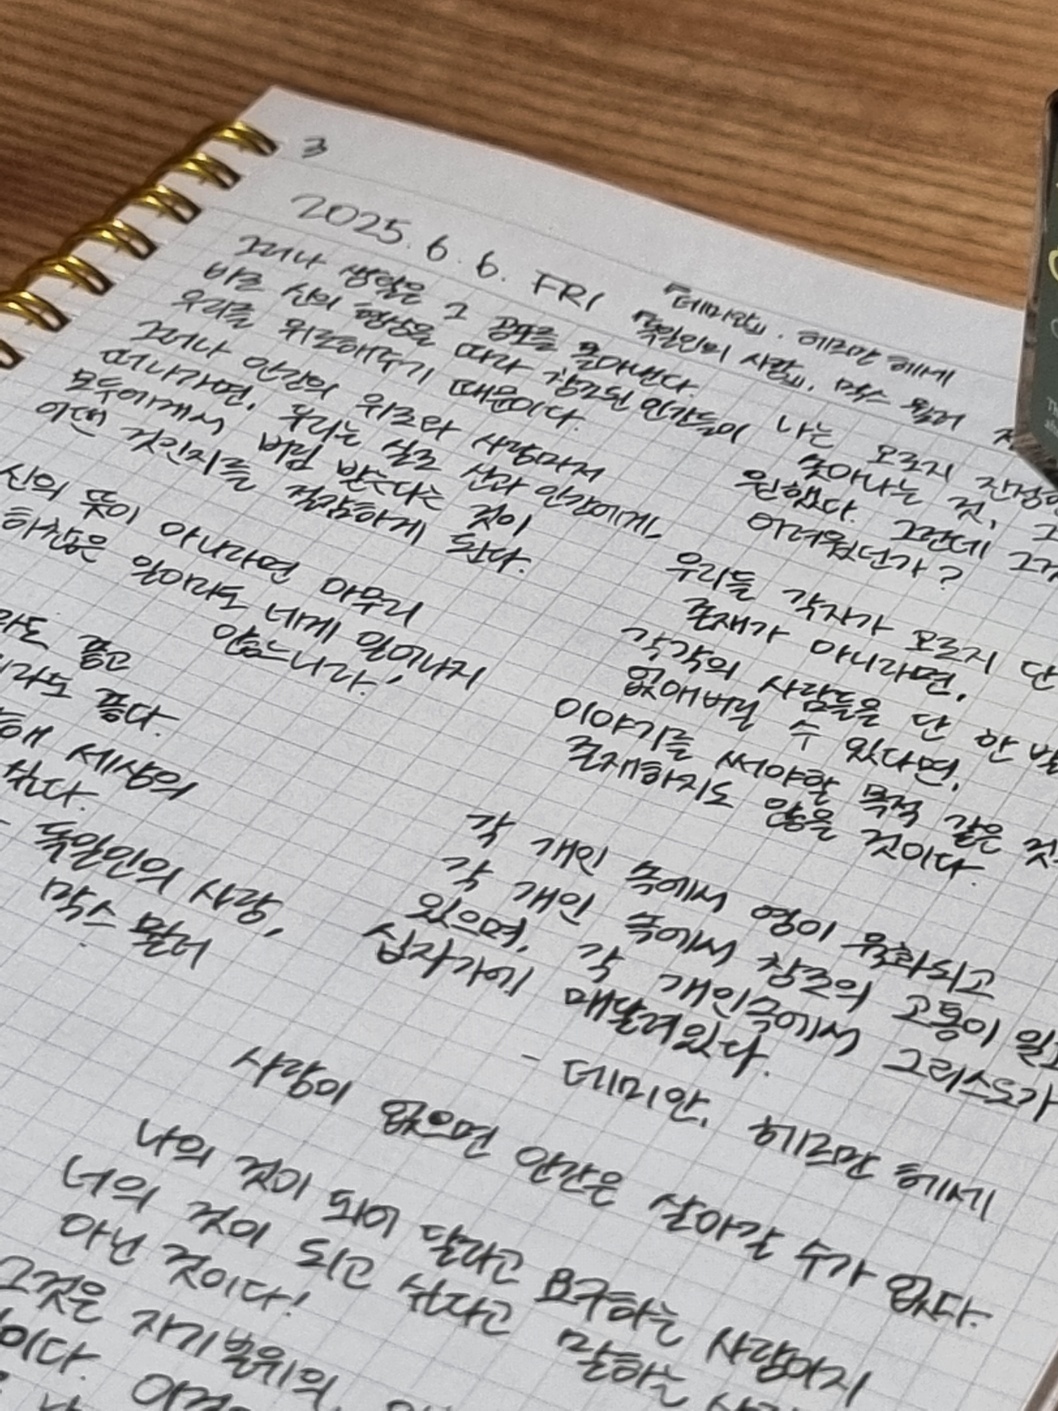 3
2025. 6. 6. FRI
『데미안』, 헤르만 헤세
『독일인의 사랑』, 막스 뮐러
그러나 생각은 그 공포를 몰아낸다.
바로 신의 형상을 따라 창조된 인간들이
우리를 위로해주기 때문이다.
그러나 인간의 위로와 사랑마저
떠나가면, 우리는 실로 신과 인간에게,
모두에게서 버림 받는다는 것이
어떤 것인지를 절감하게 된다.
신의 뜻이 아니라면 아무리
하찮은 일이라도 네게 일어나지
않느니라!
라도 좋고
라도 좋다.
해 세상의
싶다.
- 독일인의 사랑,
막스 뮐러
나는 오로지
솟아나는 것,
원했다. 그런데 그것
어려웠던가?
우리들 각자가 오로지 단
존재가 아니라면,
각각의 사람들을 단 한
없애버릴 수 있다면,
이야기를 써야할 목적 같은
존재하지도 않을 것이다.
각 개인 속에서 영이 육화되고
각 개인 속에서 창조의 고통이
있으며, 각 개인속에서 그리스도가
십자가에 매달려있다.
- 데미안, 헤르만 헤세
사랑이 없으면 인간은 살아갈 수가 없다.
나의 것이 되어 달라고 요구하는 사랑이지
너의 것이 되고 싶다고 말하는
아닌 것이다!
그것은 자기본위의,
이다.